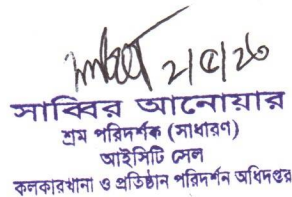 ২/৫/২৩
সাব্বির আনোয়ার
শ্রম পরিদর্শক (সাধারণ)
আইসিটি সেল
কলকারখানা ও প্রতিষ্ঠান পরিদর্শন অধিদপ্তর